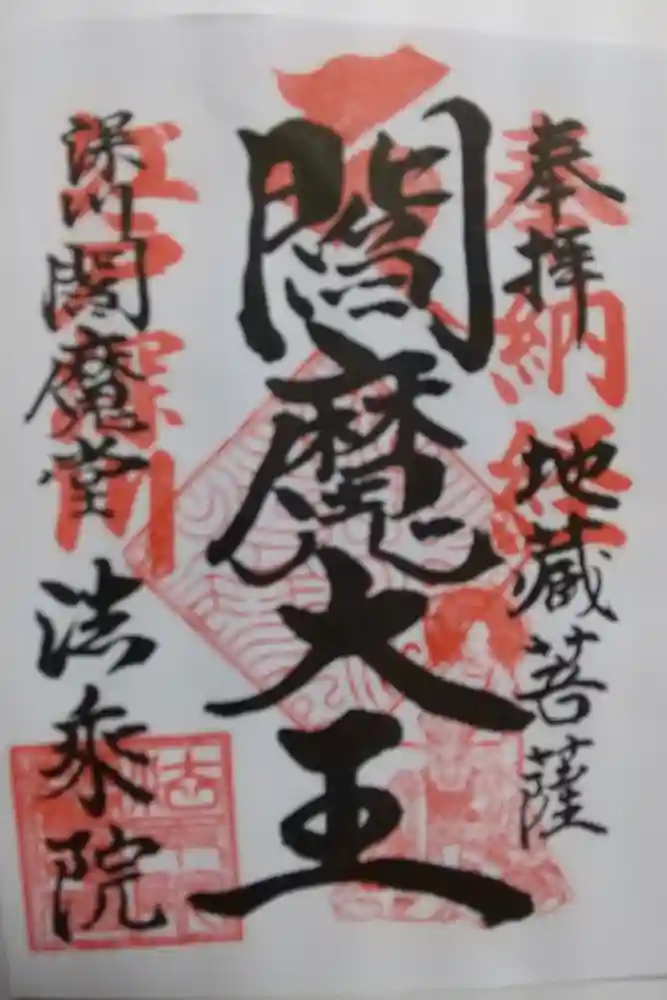 奉拝
奉納経
地蔵菩薩
閻魔大王
深川閻魔堂
江戸深川
法乗院